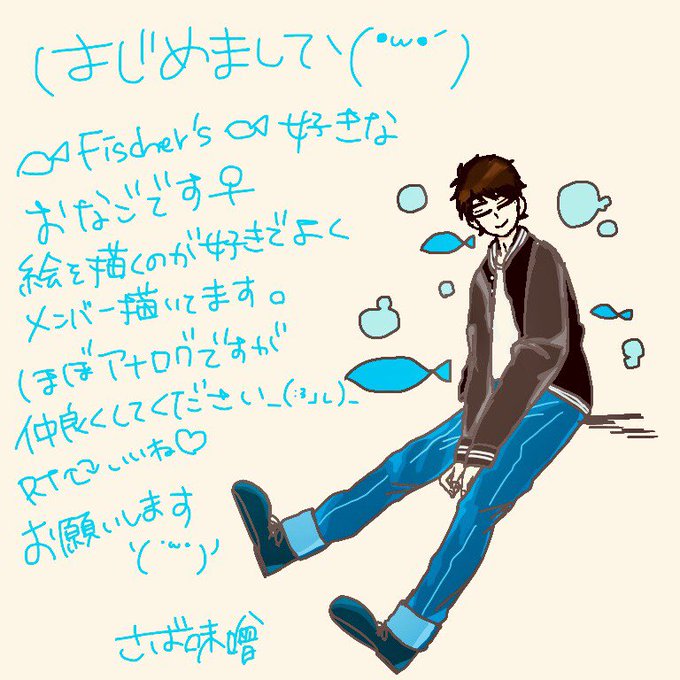 はじめまして ヽ(•ω•´)
Fischer's 好きな
おなごです♀
絵を描くのが好きでよく
メンバー描いてます。
ほぼアナログですが
仲良くしてください_(:3」ㄥ)_
RTか いいね♡
お願いします
'( ˙ω˙ )'
さば味噌